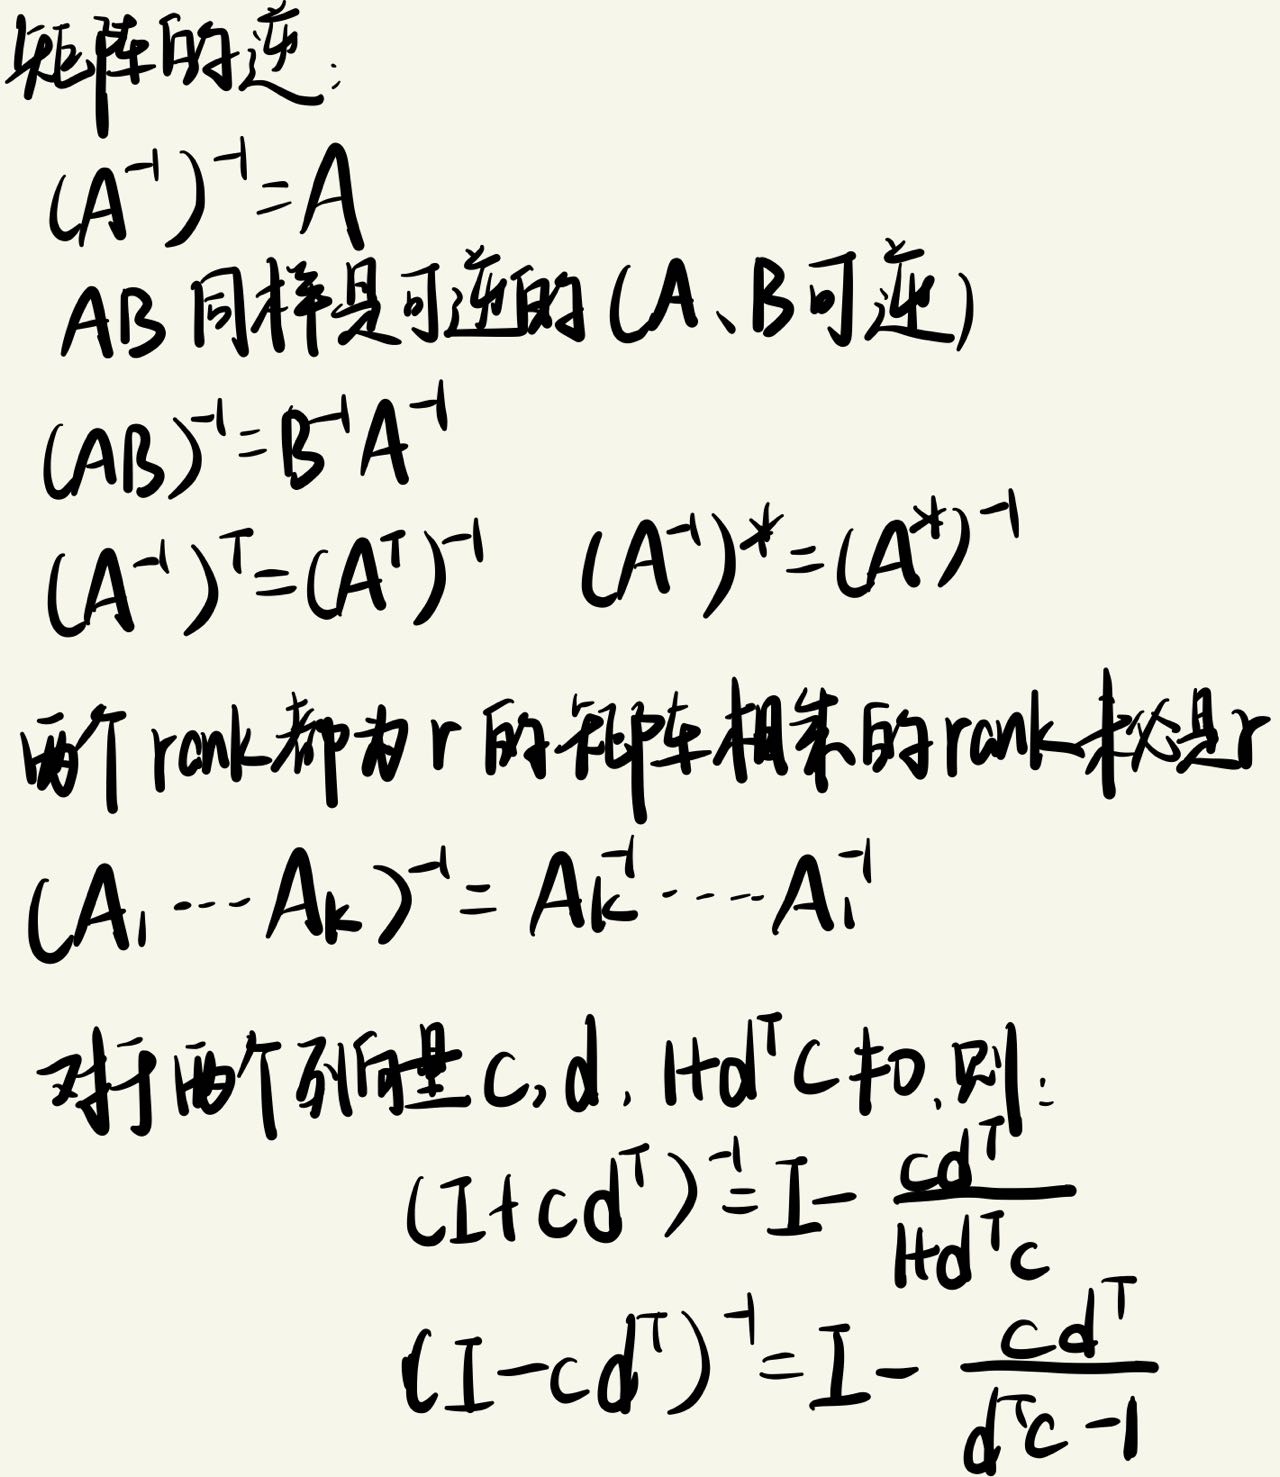 矩阵的逆:
(A⁻¹)⁻¹=A
AB同样是可逆的(A、B可逆)
(AB)⁻¹=B⁻¹A⁻¹
(A⁻¹)ᵀ=(Aᵀ)⁻¹ (A⁻¹)*=(A*)⁻¹
两个rank都为r的矩阵相乘的rank未必是r
(A₁⋯Aₖ)⁻¹=Aₖ⁻¹⋯A₁⁻¹
对于两个列向量c,d,1+dᵀc≠0,则:
(I+cdᵀ)⁻¹=I-cdᵀ/(1+dᵀc)
(I-cdᵀ)⁻¹=I-cdᵀ/(dᵀc-1)